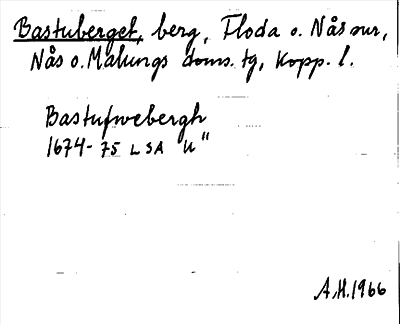 Bastuberget, berg, Floda o. Nås snr,
Nås o. Malungs doms. tg, Kopp. l.
Bastufwebergh
1674-75 LSA u"
A.H. 1966